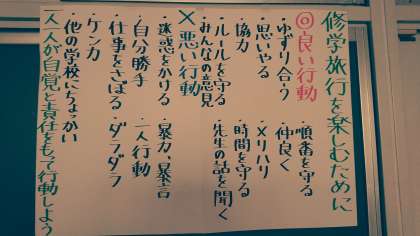 修学旅行を楽しむために
◎良い行動
・ゆずり合う ・順番を守る
・思いやる ・仲良く
・協力 ・メリハリ
・ルールを守る ・時間を守る
・みんなの意見 ・先生の話を聞く
×悪い行動
・迷惑をかける ・暴力、暴言
・自分勝手 ・一人行動
・仕事をさぼる ・ダラダラ
・ケンカ
・他の学校にちょっかい
一人一人が自覚と責任をもって行動しよう